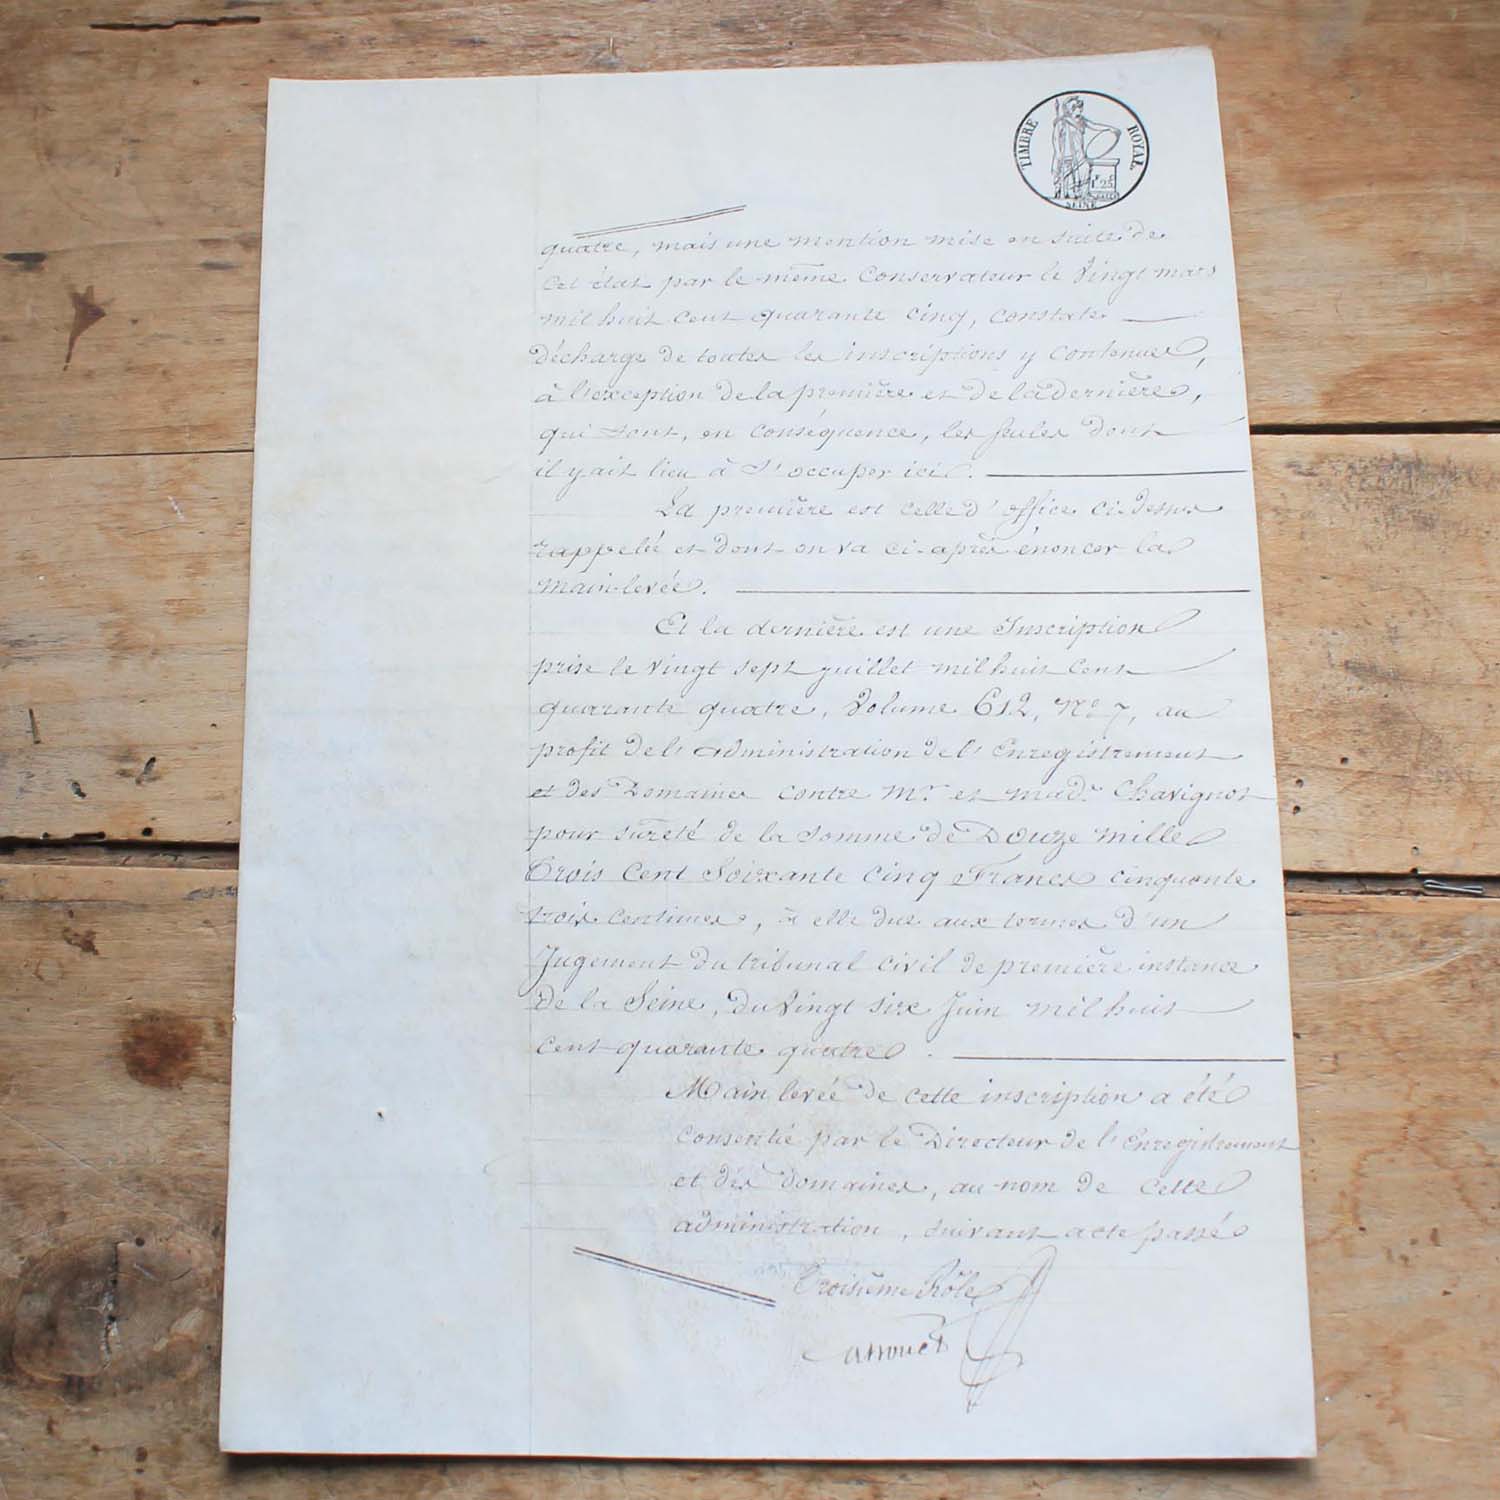 TIMBRE ROYAL
1F 25c
SEINE
quatre, mais une mention mise en suite de
Cet état par le même Conservateur le Vingt mars
mil huit cent quarante cinq, constate
décharge de toutes les inscriptions y contenues,
à l'exception de la première et de la dernière,
qui sont, en conséquence, les seules dont
il y ait lieu à s'occuper ici.
La première est celle d'office ci-dessus
rappelée et dont on va ci-après énoncer la
main-levée.
Et la dernière est une Inscription
prise le vingt sept juillet mil huit cent
quarante quatre, Volume 612, No 7, au
profit de l'administration de l'Enregistrement
et des Domaines contre Mr. et made. Chavignot
pour sûreté de la somme de Douze mille
Trois Cent Soixante Cinq Francs cinquante
trois centimes, à elle due aux termes d'un
Jugement du tribunal civil de première instance
de la Seine, du Vingt six Juin mil huit
cent quarante quatre.
Main levée de cette inscription a été
consentie par le Directeur de l'Enregistrement
et des domaines, au nom de cette
administration, suivant acte passé
Troisième Rôle